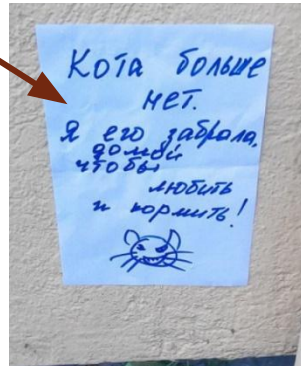 Кота больше
нет.
Я его забрала,
домой
чтобы
любить
и кормить!